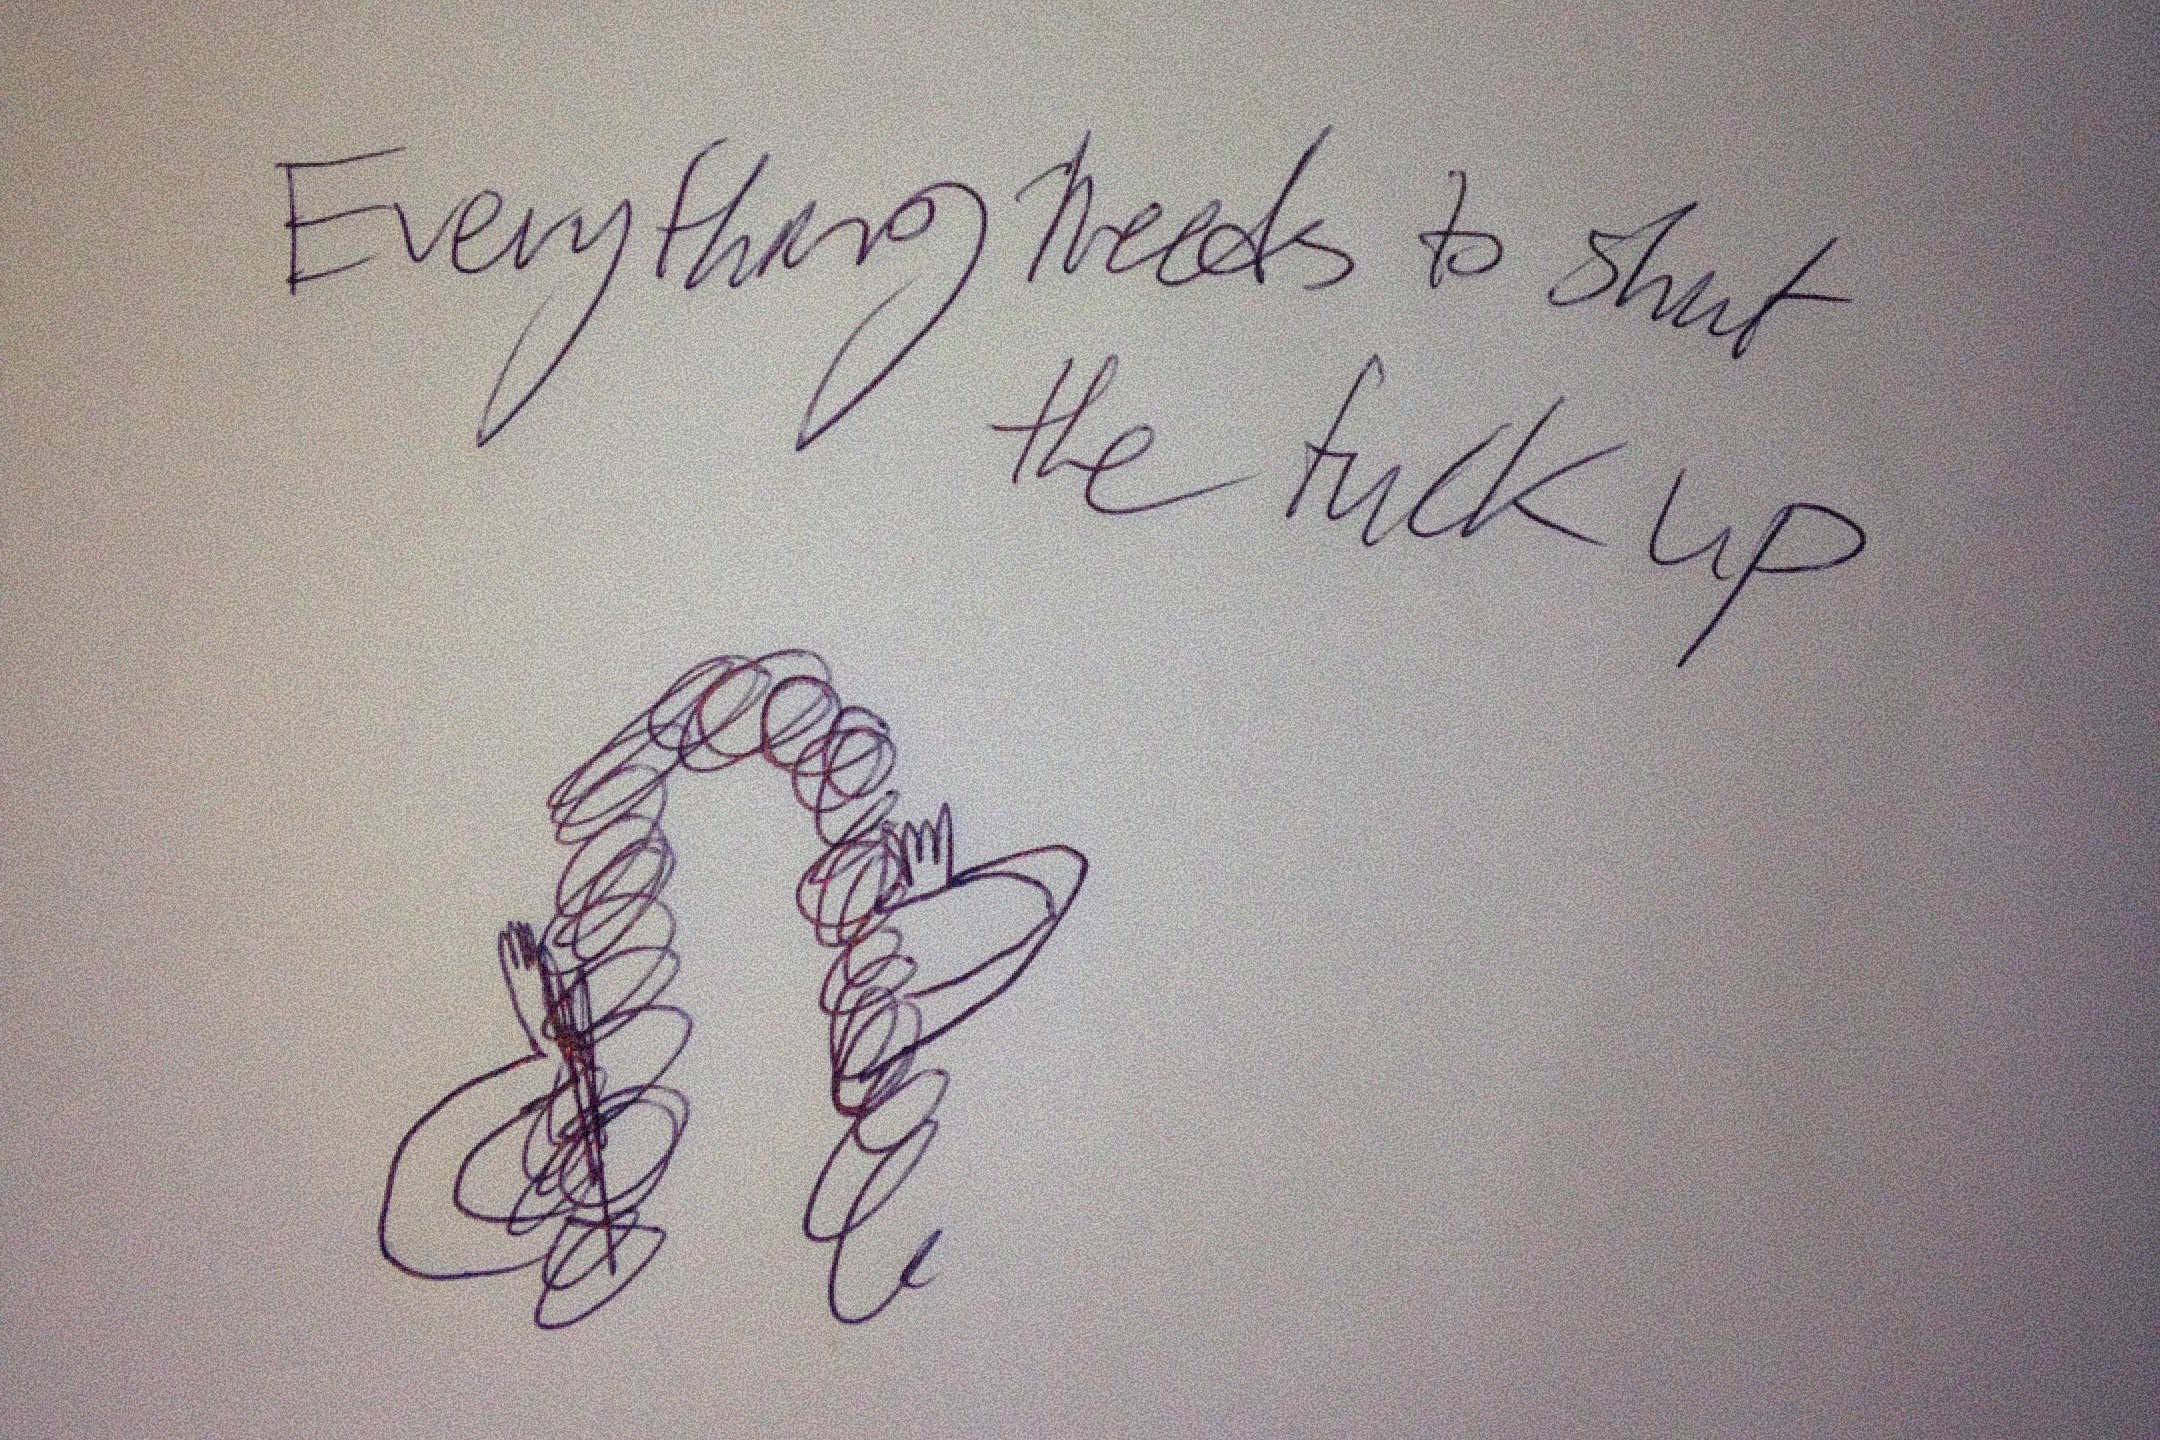 Everything needs to shut
the fuck up